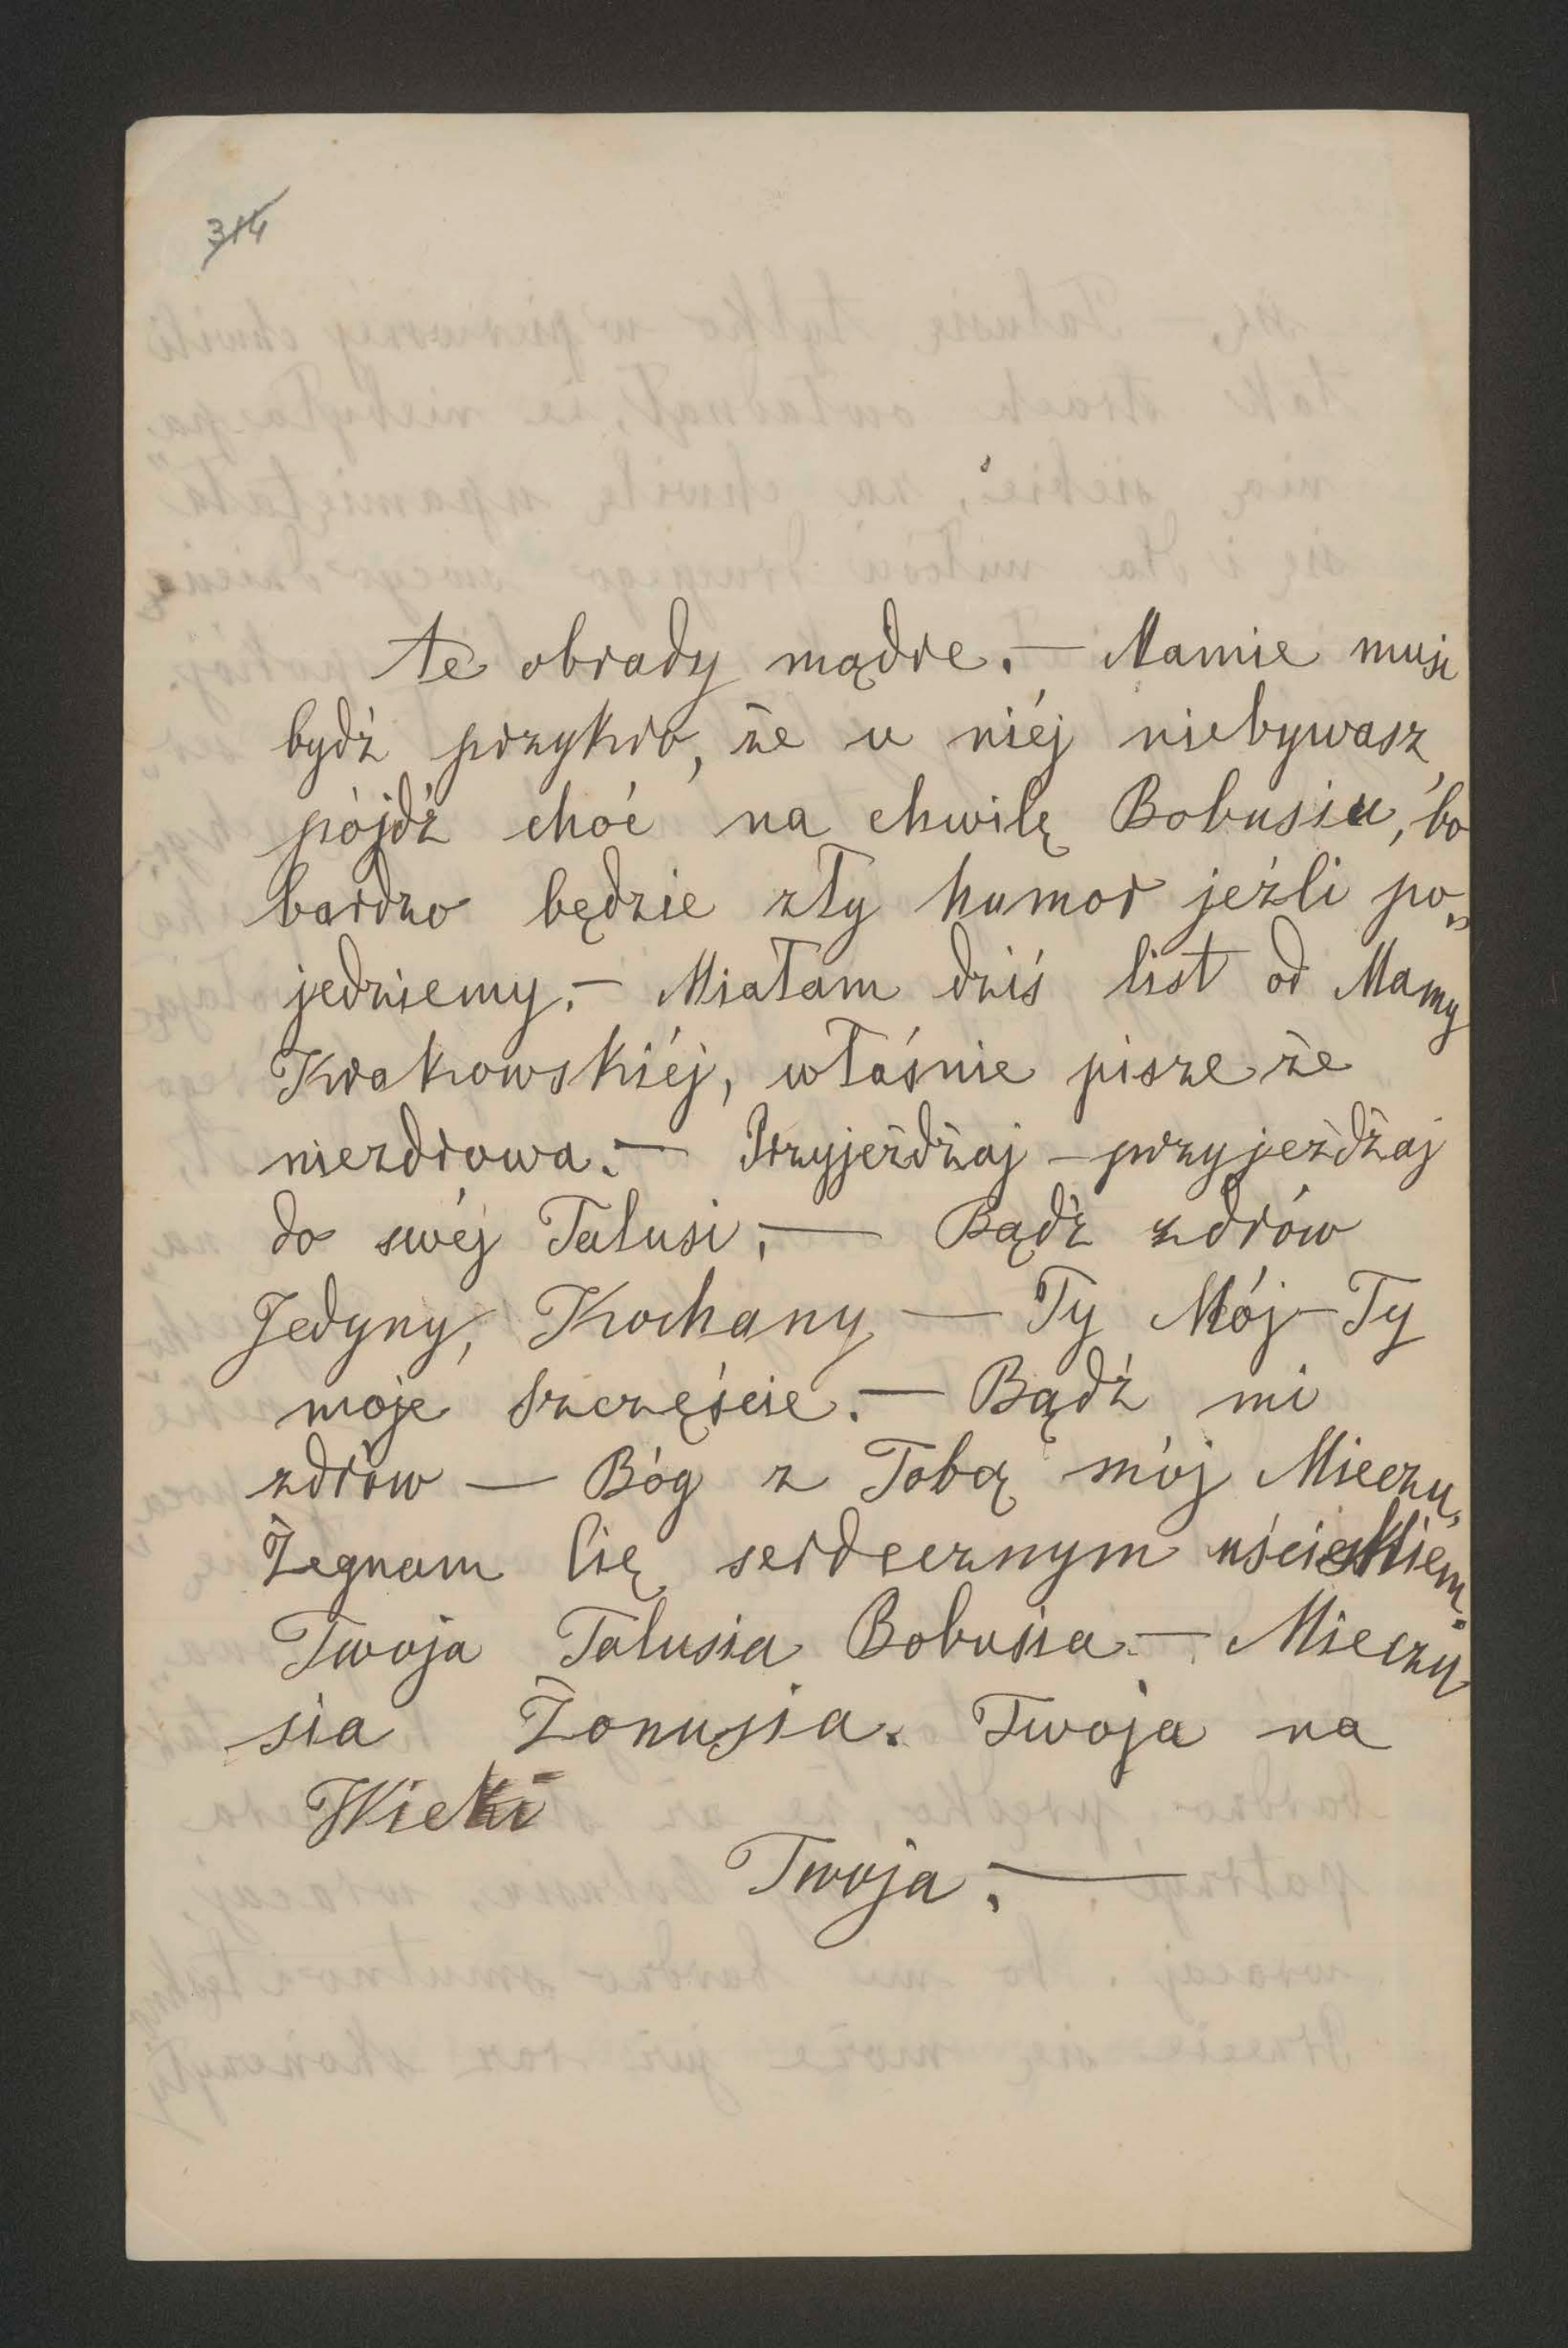 314
te obrady mądre. — Mamie musi
bydź przykro, że u niéj niebywasz,
pójdź choć na chwilę Bobusiu, bo
bardzo będzie zły humor jeźli po„
jedziemy. — Miałam dziś list od Mamy
Krakowskiéj, właśnie pisze że
niezdrowa. — Przyjeżdżaj — przyjeżdżaj
do swéj Talusi. — Bądź zdrów
Jedyny, Kochany — Ty Mój — Ty
moje szczęście. — Bądź mi
zdrów — Bóg z Tobą mój Mieczu,
Żegnam Cię serdecznym uściskiem.
Twoja Talusia Bobusia — Mieczy
sia Żonusia. Twoja na
Wieki
Twoja. —